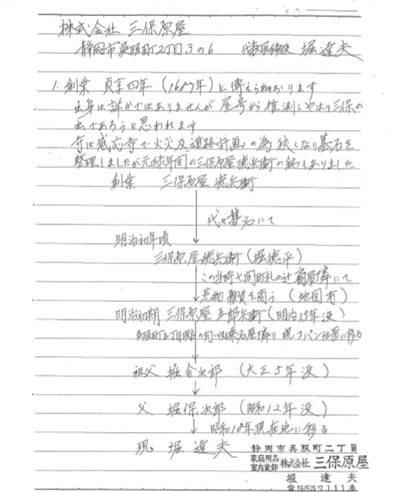 株式会社 三保原屋
静岡市呉服町2丁目3の6 代表取締役 堀達夫
1. 創業 貞享四年（1687年）と傳えられおります
出身は詳かではありませんが 屋号から推測しやはり三保の
出であろうと思われます
寺は感応寺で火災及道路計画の為 狭くなり墓石を
整理しましたが元禄年間の三保原屋徳兵衛の銘もありました
創業 三保原屋 徳兵衛
代々墓石にて
明治初年頃
三保原屋徳兵衛（堀徳平）
この当時七間町札の辻 隣にて
荒物雑貨を商う（地図有）
明治初期 三保原屋 五郎兵衛（明治15年没）
呉服町五丁目 の 隣り 現 パン 位置に移る
祖父 堀 次郎（大正5年没）
父 堀保次郎（昭和12年没）
昭和18年現在地に移る
現 堀達夫
静岡市呉服町二丁目
家庭用品
室内装飾 株式会社 三保原屋
堀 達夫